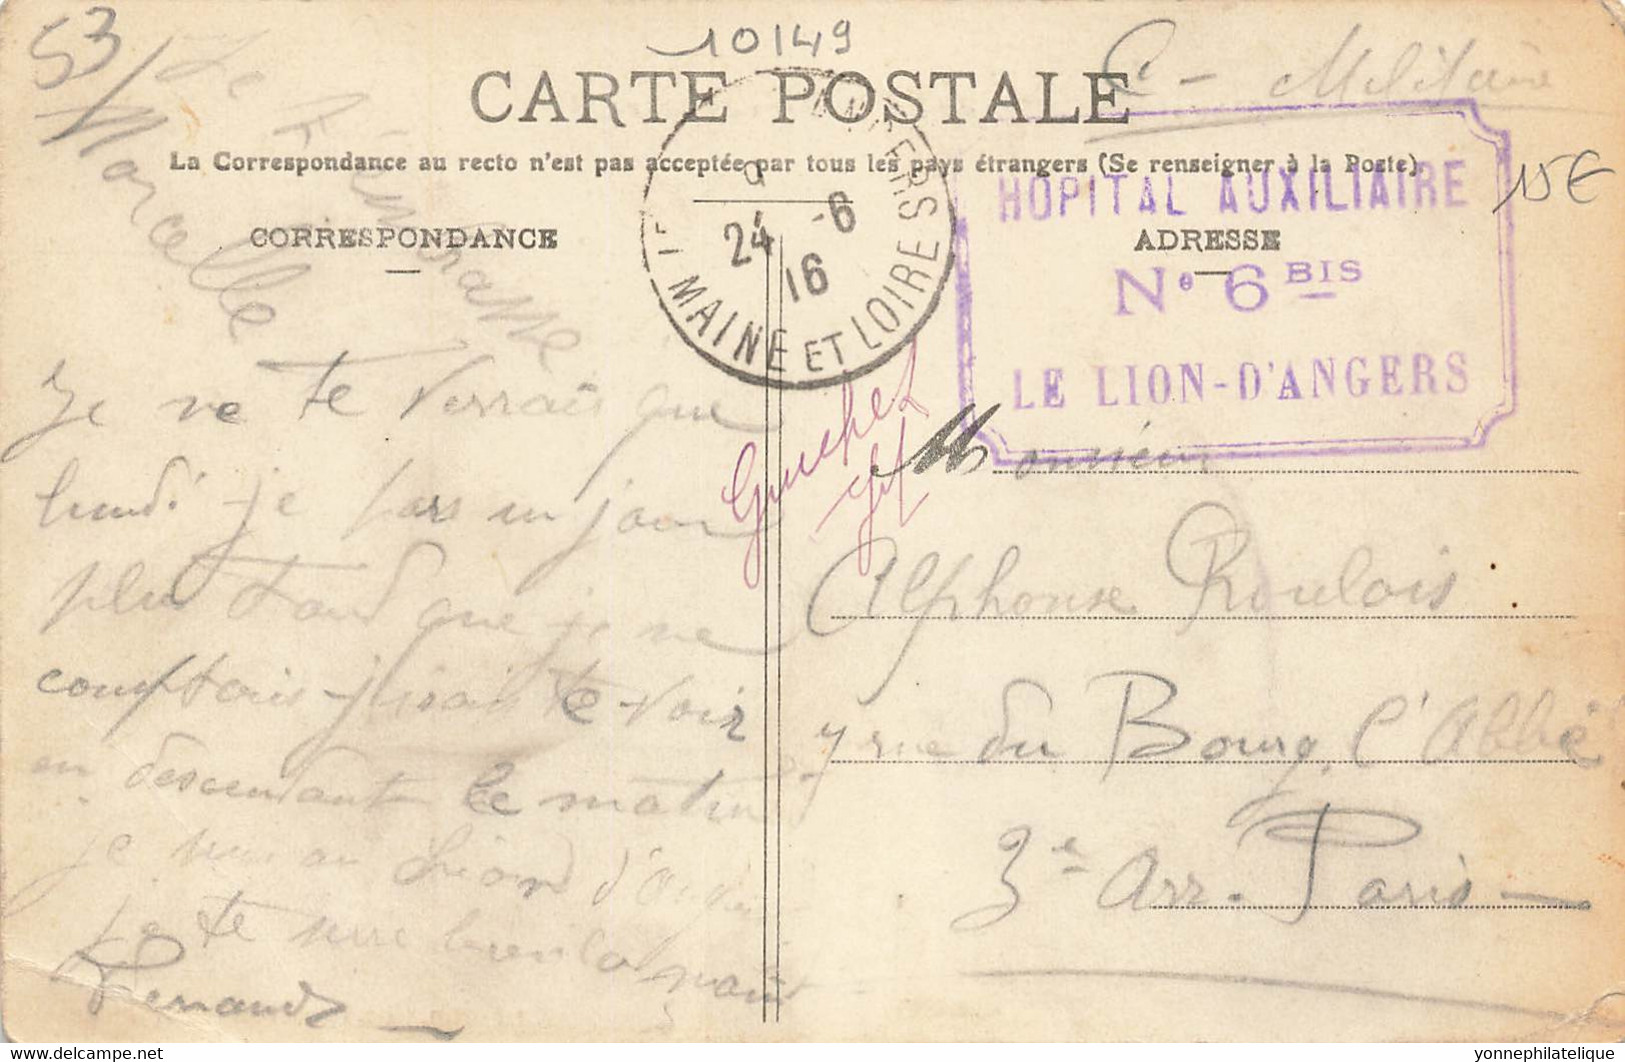 53
10149
C - Militaire
CARTE POSTALE
La Correspondance au recto n'est pas acceptée par tous les pays étrangers (Se renseigner à la Poste)
HOPITAL AUXILIAIRE
N° 6 BIS
LE LION-D'ANGERS
15€
CORRESPONDANCE
ADRESSE
24 -6
16
MAINE ET LOIRE
Je t'embrasse
Marcelle
Je ne te verrais que
lundi je pars un jour
plus tard que je ne
comptais j'irais te voir
en descendant le matin
je suis au Lion d'Angers
je te serre bien la main
Fernand
Monsieur
Alphonse Roulois
7 rue du Bourg l'Abbé
3e Arr. Paris
yonnephilatelie
www.delcampe.net